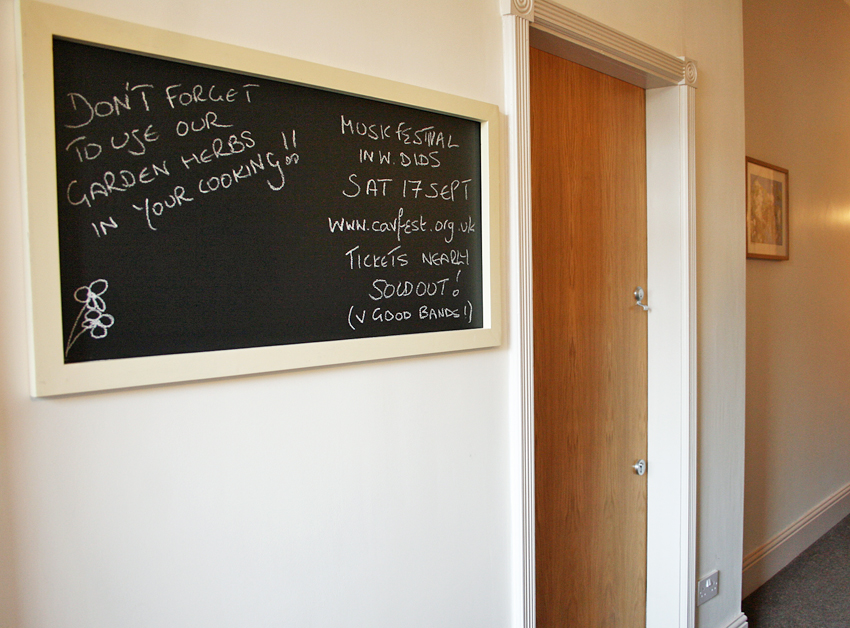 DON'T FORGET
TO USE OUR
GARDEN HERBS
IN YOUR COOKING!!
MUSIC FESTIVAL
IN W. DIDS
SAT 17 SEPT
www.cavfest.org.uk
TICKETS NEARLY
SOLD OUT!
(V GOOD BANDS!)